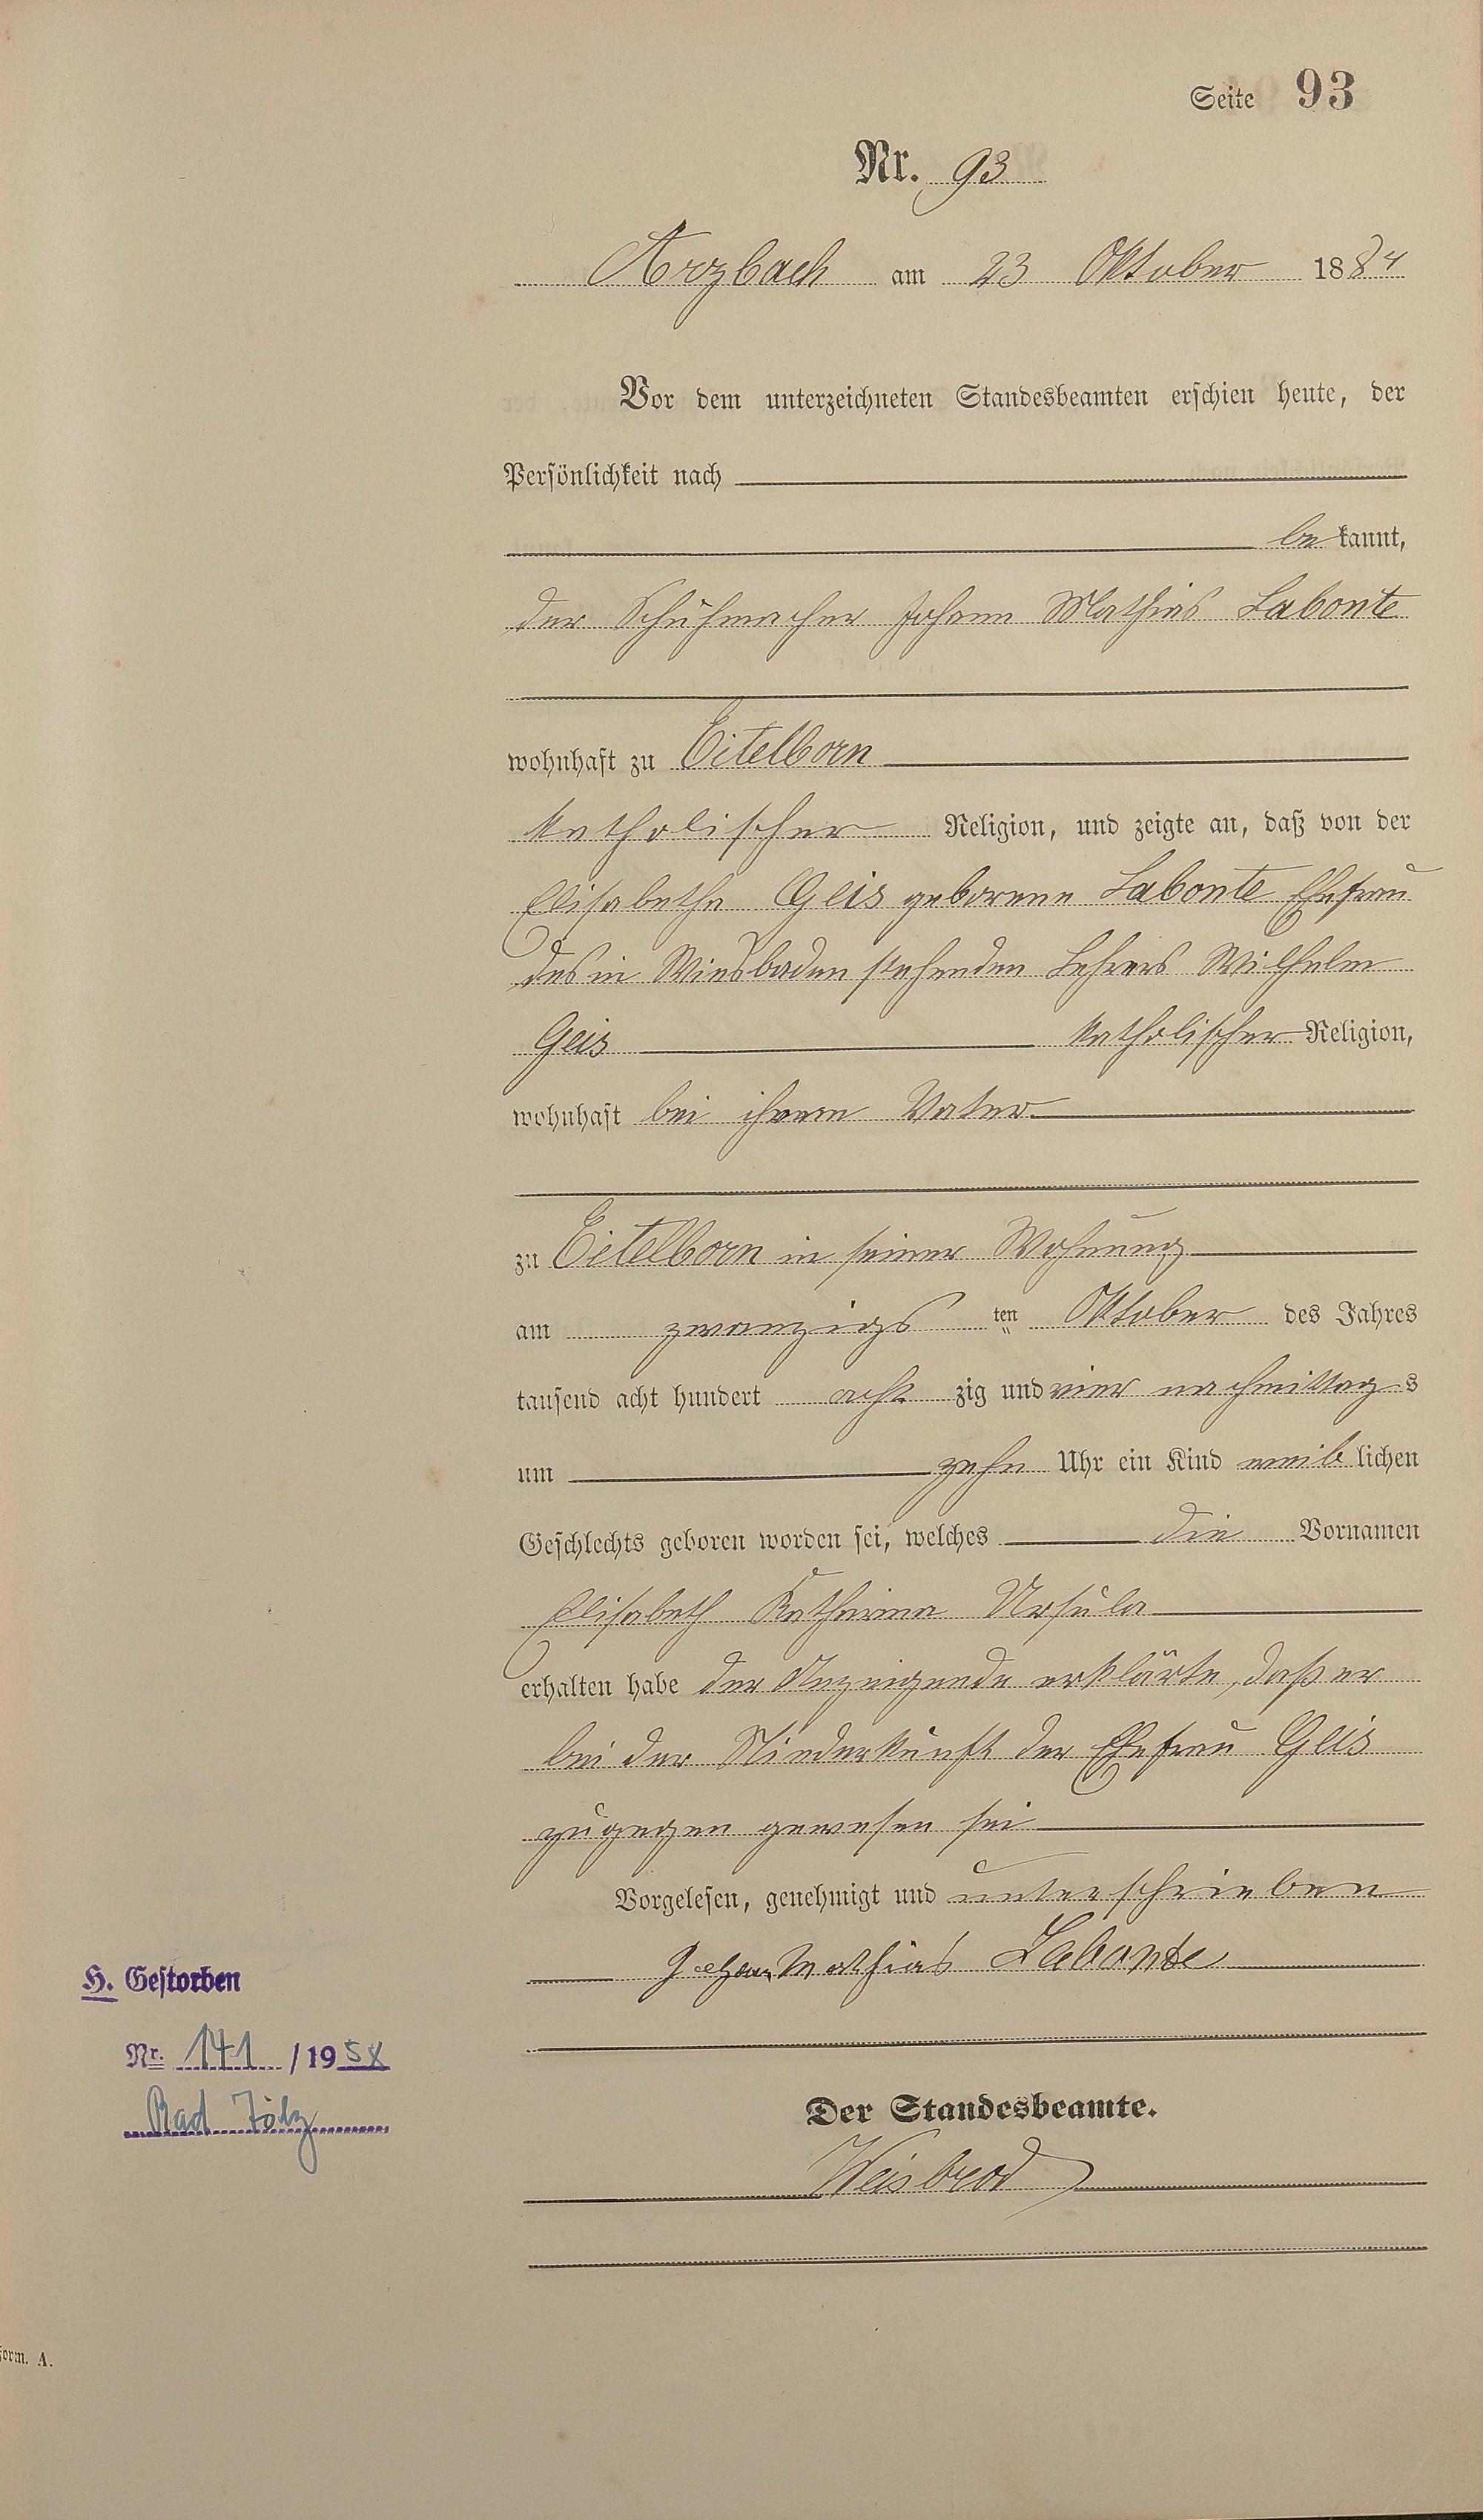 Seite 93
Nr. 93
Arzbach am 23 Oktober 1884
Vor dem unterzeichneten Standesbeamten erschien heute, der
Persönlichkeit nach
be kannt,
der Schuhmacher Johann Mathias Labonte
wohnhaft zu Eitelborn
katholischer Religion, und zeigte an, daß von der
Elisabetha Geis geborene Labonte Ehefrau
des in Wiesbaden stehenden Lehrers Wilhelm
Geis katholischer Religion,
wohnhaft bei ihrem Vater
zu Eitelborn in seiner Wohnung
am zwanzigs ten Oktober des Jahres
tausend acht hundert acht zig und vier nachmittags
um zehn Uhr ein Kind weib lichen
Geschlechts geboren worden sei, welches die Vornamen
Elisabeth Katharina Ursula
erhalten habe der Anzeigende erklärte, daß er
bei der Niederkunft der Ehefrau Geis
zugegen gewesen sei
Vorgelesen, genehmigt und unterschrieben
Johann Mathias Labonte
H. Gestorben
Nr. 141 / 19
Bad Tölz
Der Standesbeamte.
Weisbrod
Form. A.